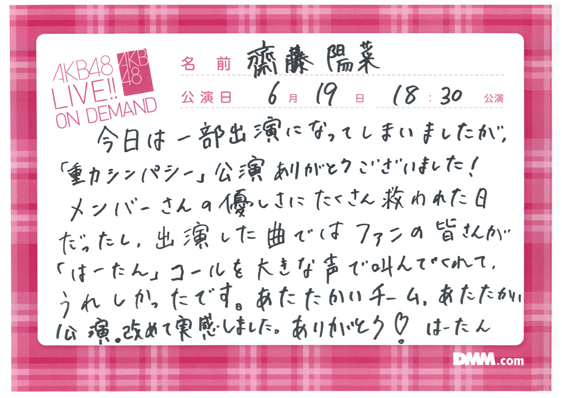 AKB48
LIVE!!
ON DEMAND
AKB
48
名前 齋藤 陽菜
公演日 6月19日 18:30公演
今日は一部出演になってしまいましたが、
「重力シンパシー」公演ありがとうございました!
メンバーさんの優しさにたくさん救われた日
だったし、出演した曲ではファンの皆さんが
「はーたん」コールを大きな声で叫んでくれて、
うれしかったです。あたたかいチーム、あたたかい
公演。改めて実感しました。ありがとう♡ はーたん
DMM.com